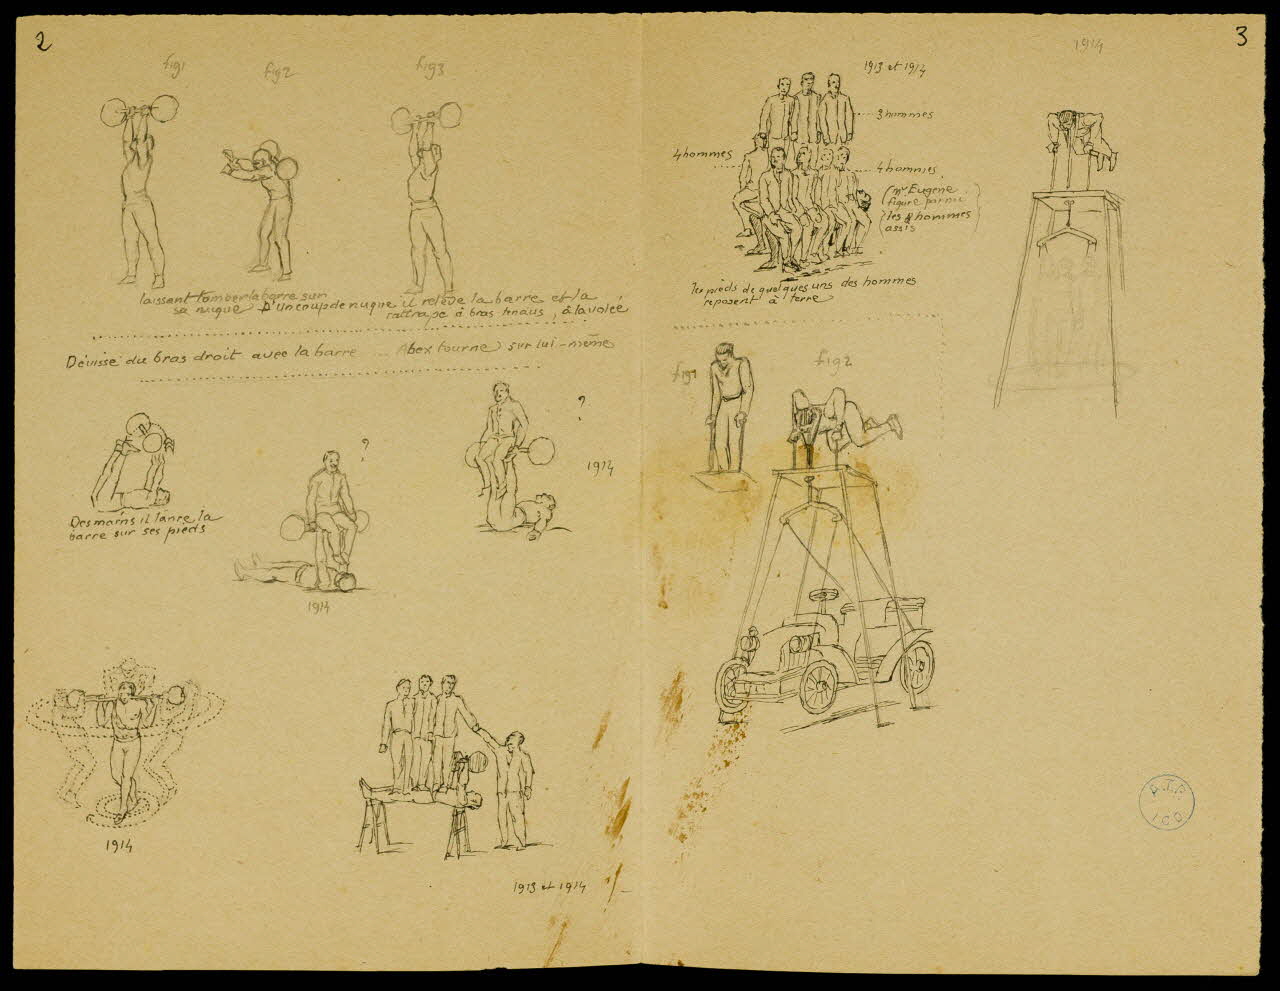 2
fig1
fig2
fig3
laissant tomber la barre sur
sa nuque
D'un coup de nuque il relève la barre et la
rattrape à bras tendus, à la volée
Dévissé du bras droit avec la barre ... Abex tourne sur lui-même
?
?
1914
Des mains il lance la
barre sur ses pieds
1914
1914
1913 et 1914
3
1914
1913 et 1914
3 hommes
4 hommes
4 hommes
(Mr Eugène
figure parmi
les 8 hommes
assis)
les pieds de quelques uns des hommes
reposent à terre
fig1
fig2
A.T.P.